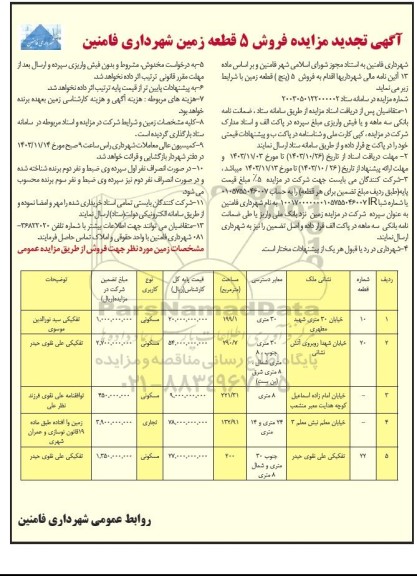 آگهی تجدید مزایده فروش ۵ قطعه زمین شهرداری فامنین
شهرداری فامنین به استناد مجوز شورای اسلامی شهر فامنین و بر اساس ماده
۱۳ آئین نامه مالی شهرداریها اقدام به فروش ۵ (پنج) قطعه زمین با شرایط
زیر می نماید.
شماره مزایده در سامانه ستاد
۱-متقاضیان پس از دریافت اسناد مزایده از طریق سامانه ستاد، ضمانت نامه
بانکی سه ماهه و یا فیش واریزی مبلغ سپرده در پاکت الف و اسناد مدارک
شرکت در مزایده، کپی کارت ملی و شناسنامه در پاکت ب و پیشنهادات قیمتی
خود را در پاکت ج قرار داده و از طریق سامانه ستاد ارسال نمایند
۲- مهلت دریافت اسناد از تاریخ (۱۴۰۳/۱۰/۲۶) تا مورخ ۱۴۰۳/۱۱/۰۳ و
مهلت ارائه پیشنهاد از تاریخ (۱۴۰۳/۱۰/۲۶) تا مورخ ۱۴۰۳/۱۱/۱۳ میباشد.
۳-شرکت کنندگان می بایست جهت شرکت در مزایده ۵٪ مبلغ قیمت
پایه(طبق ردیف مبلغ تضمین برای هر قطعه) را به حساب
یا شماره شبا IR به نام شهرداری فامنین
به عنوان سپرده شرکت در مزایده زمین نزد بانک ملی واریز یا طی ضمانت
نامه بانکی سه ماهه در پاکت الف قرار داده و اصل تضمین را نیز به شهرداری
ارسال نمایند.
۴-شهرداری در رد یا قبول هر یک از پیشنهادات مختار است.
۵-به درخواست مخدوش، مشروط و بدون فیش واریزی سپرده و ارسال بعد از
مهلت مقرر قانونی ترتیب اثر داده نخواهد شد.
۶-به پیشنهادات پایین تر از قیمت پایه ترتیب اثر داده نخواهد شد.
۷-هزینه های مربوطه : هزینه آگهی و هزینه کارشناسی زمین بعهده برنده
خواهد بود.
۸-کلیه مشخصات زمین و شرایط شرکت در مزایده و اسناد مربوطه در سامانه
ستاد بارگذاری گردیده است.
۹-کمیسیون عالی معاملات شهرداری راس ساعت ۹ صبح مورخ ۱۴۰۳/۱۱/۱۴
در دفتر شهردار بازگشایی و قرائت خواهد شد.
۱۰-در صورت انصراف نفر اول سپرده وی ضبط و نفر دوم برنده شناخته شده
و در صورت انصراف نفر دوم نیز سپرده وی ضبط و نفر سوم برنده محسوب
می شود.
۱۱-شرکت کنندگان بایستی تمامی اسناد خریداری شده را مهر و امضا نموده و
از طریق سامانه الکترونیکی دولت(ستاد) ارسال نمایند
۱۳-متقاضیان می توانند جهت اطلاعات بیشتر با شماره تلفن
۰۸۱ شهرداری فامنین با واحد حقوقی و املاک تماس حاصل فرمایند.
مشخصات زمین مورد نظر جهت فروش از طریق مزایده عمومی
ردیف شماره قطعه نشانی ملک معابر دسترسی مساحت (مترمربع) قیمت پایه کل کارشناسی(ریال) نوع کاربری مبلغ تضمین شرکت در مزایده(ریال) توضیحات
۱ ۱۰ خیابان ۳۰ متری شهید مطهری ۳۰ متری ۱۹۹/۱ ۲۰,۰۰۰,۰۰۰,۰۰۰ مسکونی ۱,۰۰۰,۰۰۰,۰۰۰ تفکیکی سید نورالدین موسوی
۲ ۲۰ خیابان شهدا روبروی آتش نشانی ۳۰ متری جنوب ۸ متری شمال ۸ متری شرق (بن بست) ۲۹۰/۷ ۵۴,۰۰۰,۰۰۰,۰۰۰ مسکونی ۲,۷۰۰,۰۰۰,۰۰۰ تفکیکی علی تقوی حیدر
۳ - خیابان امام زاده اسماعیل کوچه هدایت معبر منشعب ۸ متری ۲۲۱/۳۱ ۹,۰۰۰,۰۰۰,۰۰۰ مسکونی ۴۵۰,۰۰۰,۰۰۰ توافقنامه علی تقوی فرزند نظر علی
۴ - خیابان معلم نبش معلم ۳ ۲۴ متری و ۱۴ متری ۱۳۲/۹۱ ۷۸,۰۰۰,۰۰۰,۰۰۰ تجاری ۳,۹۰۰,۰۰۰,۰۰۰ زمین وا افتاده طبق ماده ۱۹قانون نوسازی و عمران شهری
۵ ۲۲ تفکیکی علی تقوی حیدر جنوب ۳۰ متری و شمال ۸ متری ۴۰۰ ۲۷,۰۰۰,۰۰۰,۰۰۰ مسکونی ۱,۳۵۰,۰۰۰,۰۰۰ تفکیکی علی تقوی حیدر
ParsNamadData
۰۲۱-۸۸۳۴۹۶۷۰-۵
روابط عمومی شهرداری فامنین